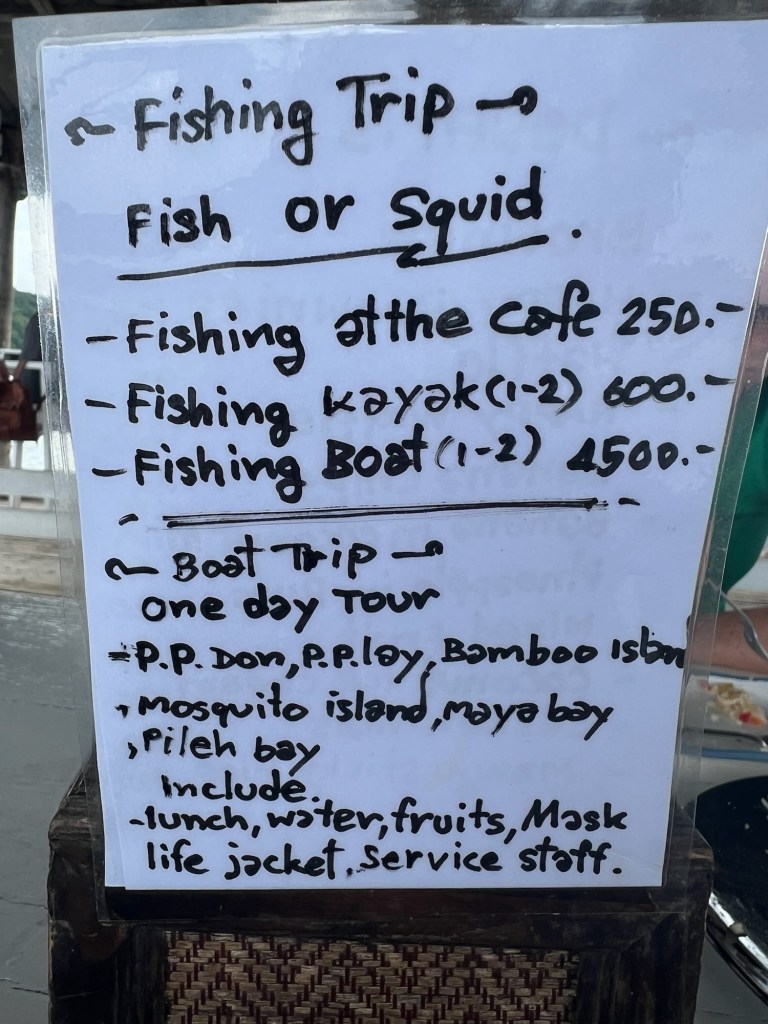 ~ Fishing Trip ~
Fish or Squid.
- Fishing at the Cafe 250.-
- Fishing kayak (1-2) 600.-
- Fishing Boat (1-2) 4500.-
~ Boat Trip ~
one day Tour
- P.P. Don, P.P. lay, Bamboo Island
, Mosquito island, Maya bay
, Pileh bay
Include.
- lunch, water, fruits, Mask
life jacket, service staff.